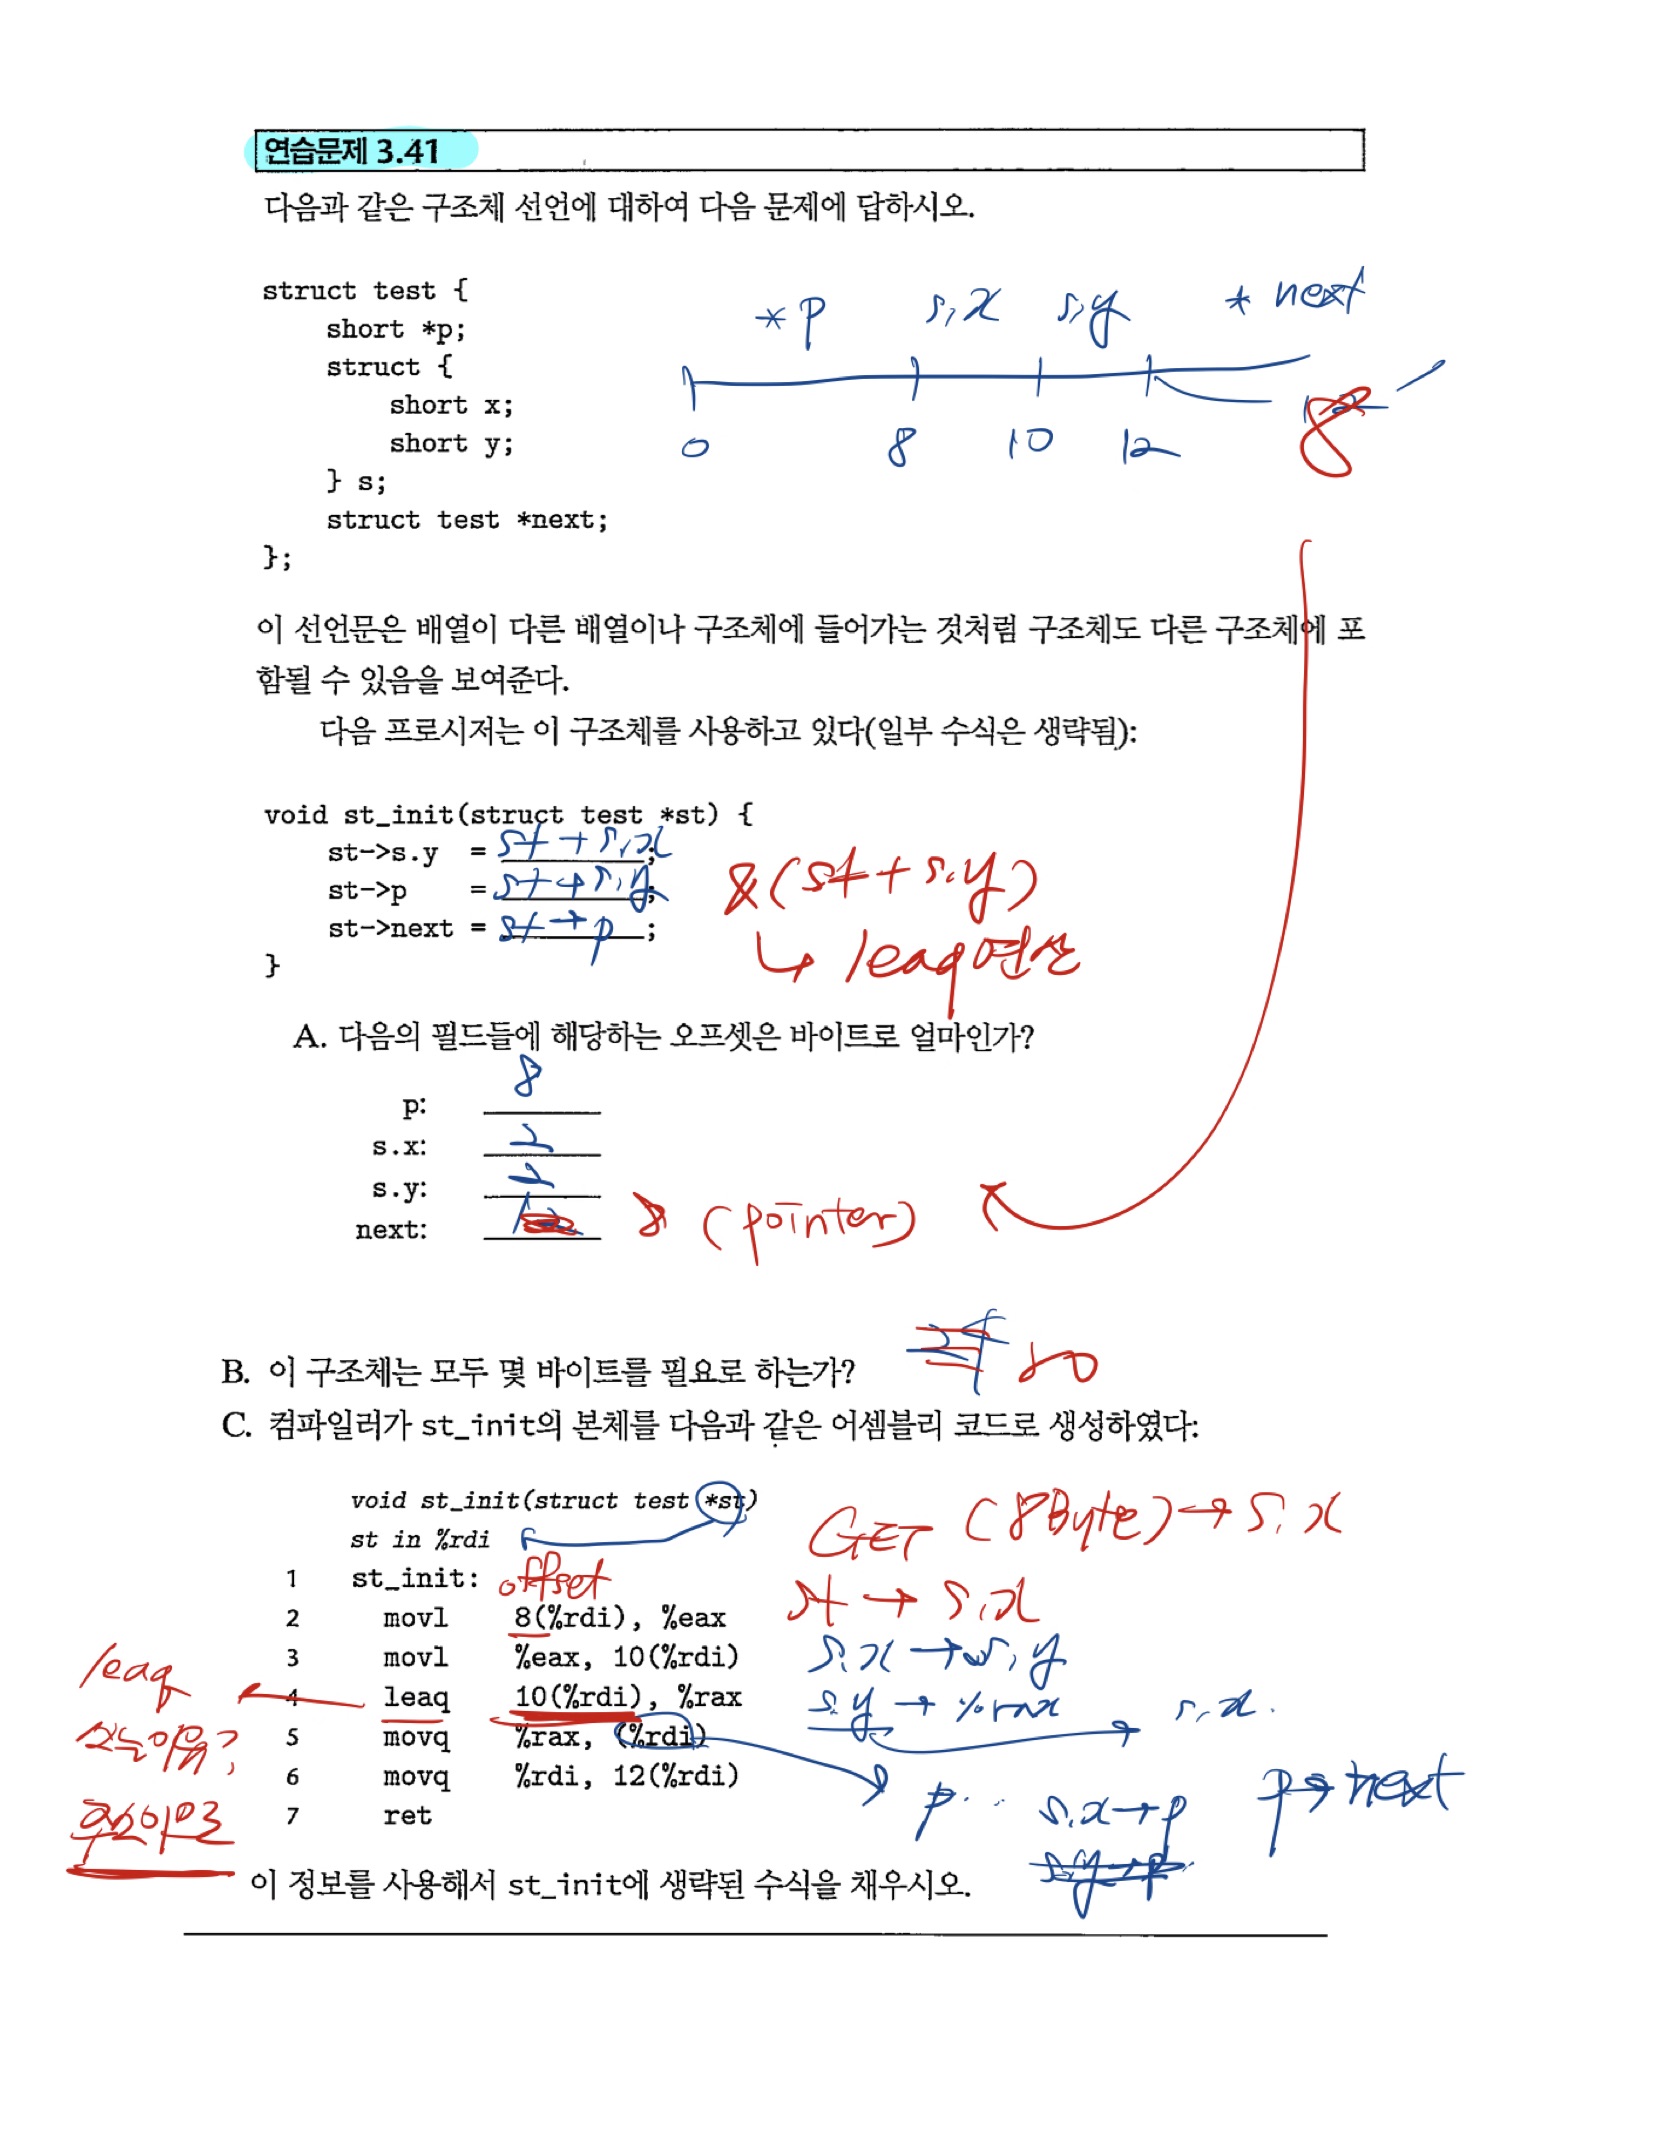 연습문제 3.41
다음과 같은 구조체 선언에 대하여 다음 문제에 답하시오.
struct test {
short *p;
struct {
short x;
short y;
} s;
struct test *next;
};
*p s.x s.y *next
0 8 10 12 8
이 선언문은 배열이 다른 배열이나 구조체에 들어가는 것처럼 구조체도 다른 구조체에 포
함될 수 있음을 보여준다.
다음 프로시저는 이 구조체를 사용하고 있다(일부 수식은 생략됨):
void st_init(struct test *st) {
st->s.y = st → s.x ;
st->p = st → s.y ;
st->next = st → p ;
}
&(st → s.y)
↳ leaq 연산
A. 다음의 필드들에 해당하는 오프셋은 바이트로 얼마인가?
p: 8
s.x: 2
s.y: 2
next: 8 (pointer)
B. 이 구조체는 모두 몇 바이트를 필요로 하는가? 24 20
C. 컴파일러가 st_init의 본체를 다음과 같은 어셈블리 코드로 생성하였다:
void st_init(struct test *st)
st in %rdi
GET (8Byte) → s.x
1 st_init: offset
st → s.x
2 movl 8(%rdi), %eax
3 movl %eax, 10(%rdi) s.x → s.y
4 leaq 10(%rdi), %rax s.y → %rax s.x.
5 movq %rax, (%rdi)
6 movq %rdi, 12(%rdi) p.. s.x → p p → next
7 ret s.y → p
leaq
쓰는이유?
주소이므로
이 정보를 사용해서 st_init에 생략된 수식을 채우시오.